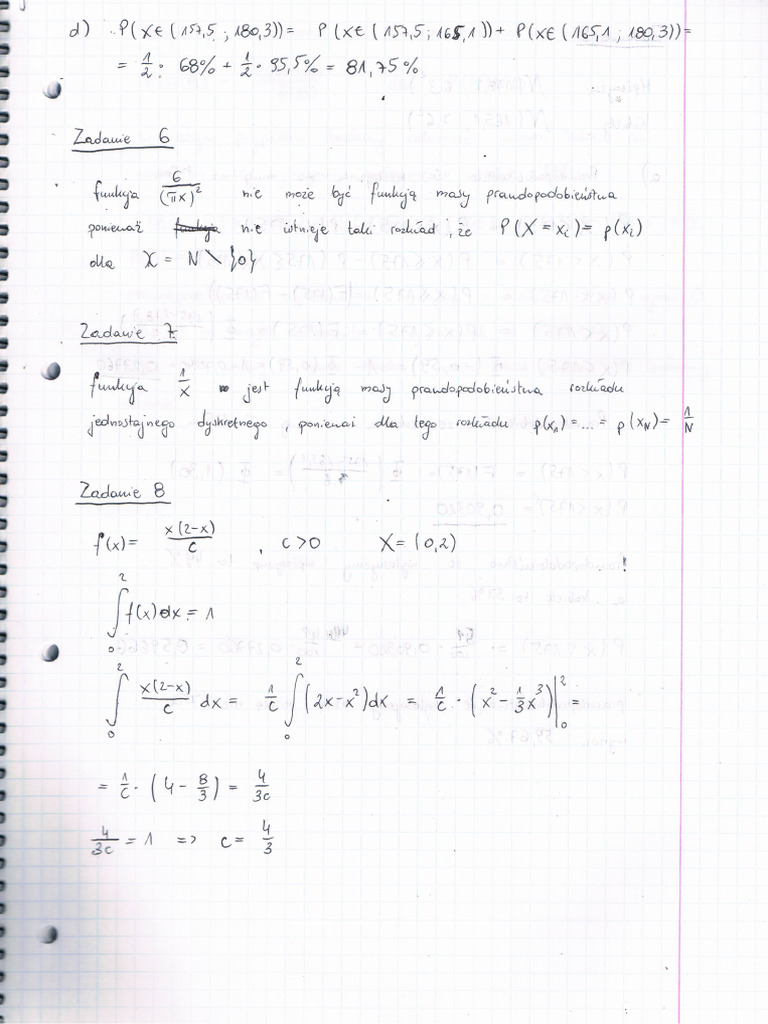 d) P(X∈(157,5 ; 180,3)) = P(X∈(157,5 ; 165,1)) + P(X∈(165,1 ; 180,3)) =
= 1/2 · 68% + 1/2 · 95,5% = 81,75%
Zadanie 6
funkcja 6/(πx)² nie może być funkcją masy prawdopodobieństwa
ponieważ funkcja nie istnieje taki rozkład, że P(X = xᵢ) = p(xᵢ)
dla X = N \ {0}
Zadanie 7
funkcja 1/x jest funkcją masy prawdopodobieństwa rozkładu
jednostajnego dyskretnego, ponieważ dla tego rozkładu p(x₁) = ... = p(x_N) = 1/N
Zadanie 8
f(x) = x(2-x)/c , c > 0 X = (0,2)
∫₀² f(x)dx = 1
∫₀² x(2-x)/c dx = 1/c ∫₀² (2x-x²)dx = 1/c · (x² - 1/3 x³)|₀² =
= 1/c · (4 - 8/3) = 4/3c
4/3c = 1 => c = 4/3